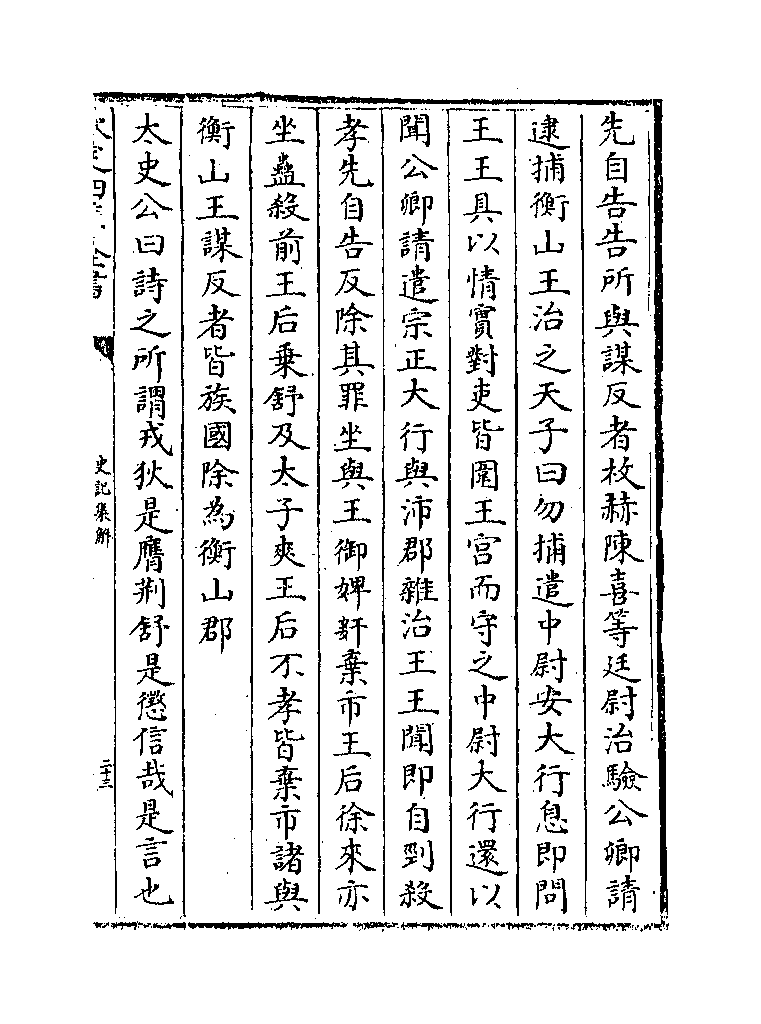 先自告告所與謀反者枚赫陳喜等廷尉治驗公卿請
逮捕衡山王治之天子曰勿捕遣中尉安大行息即問
王王具以情實對吏皆圍王宮而守之中尉大行還以
聞公卿請遣宗正大行與沛郡雜治王王聞即自剄殺
孝先自告反除其罪坐與王御婢姧棄市王后徐來亦
坐蠱殺前王后乗舒及太子爽王后不孝皆棄市諸與
衡山王謀反者皆族國除為衡山郡
太史公曰詩之所謂戎狄是膺荆舒是懲信哉是言也
史記集解
二十三